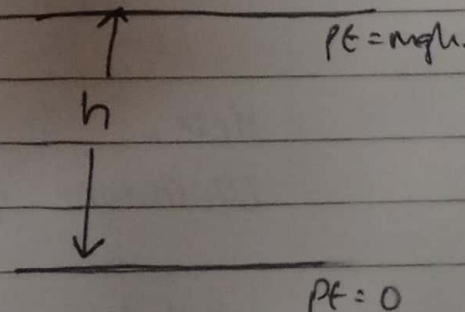 PE = mgh.
h
PE = 0